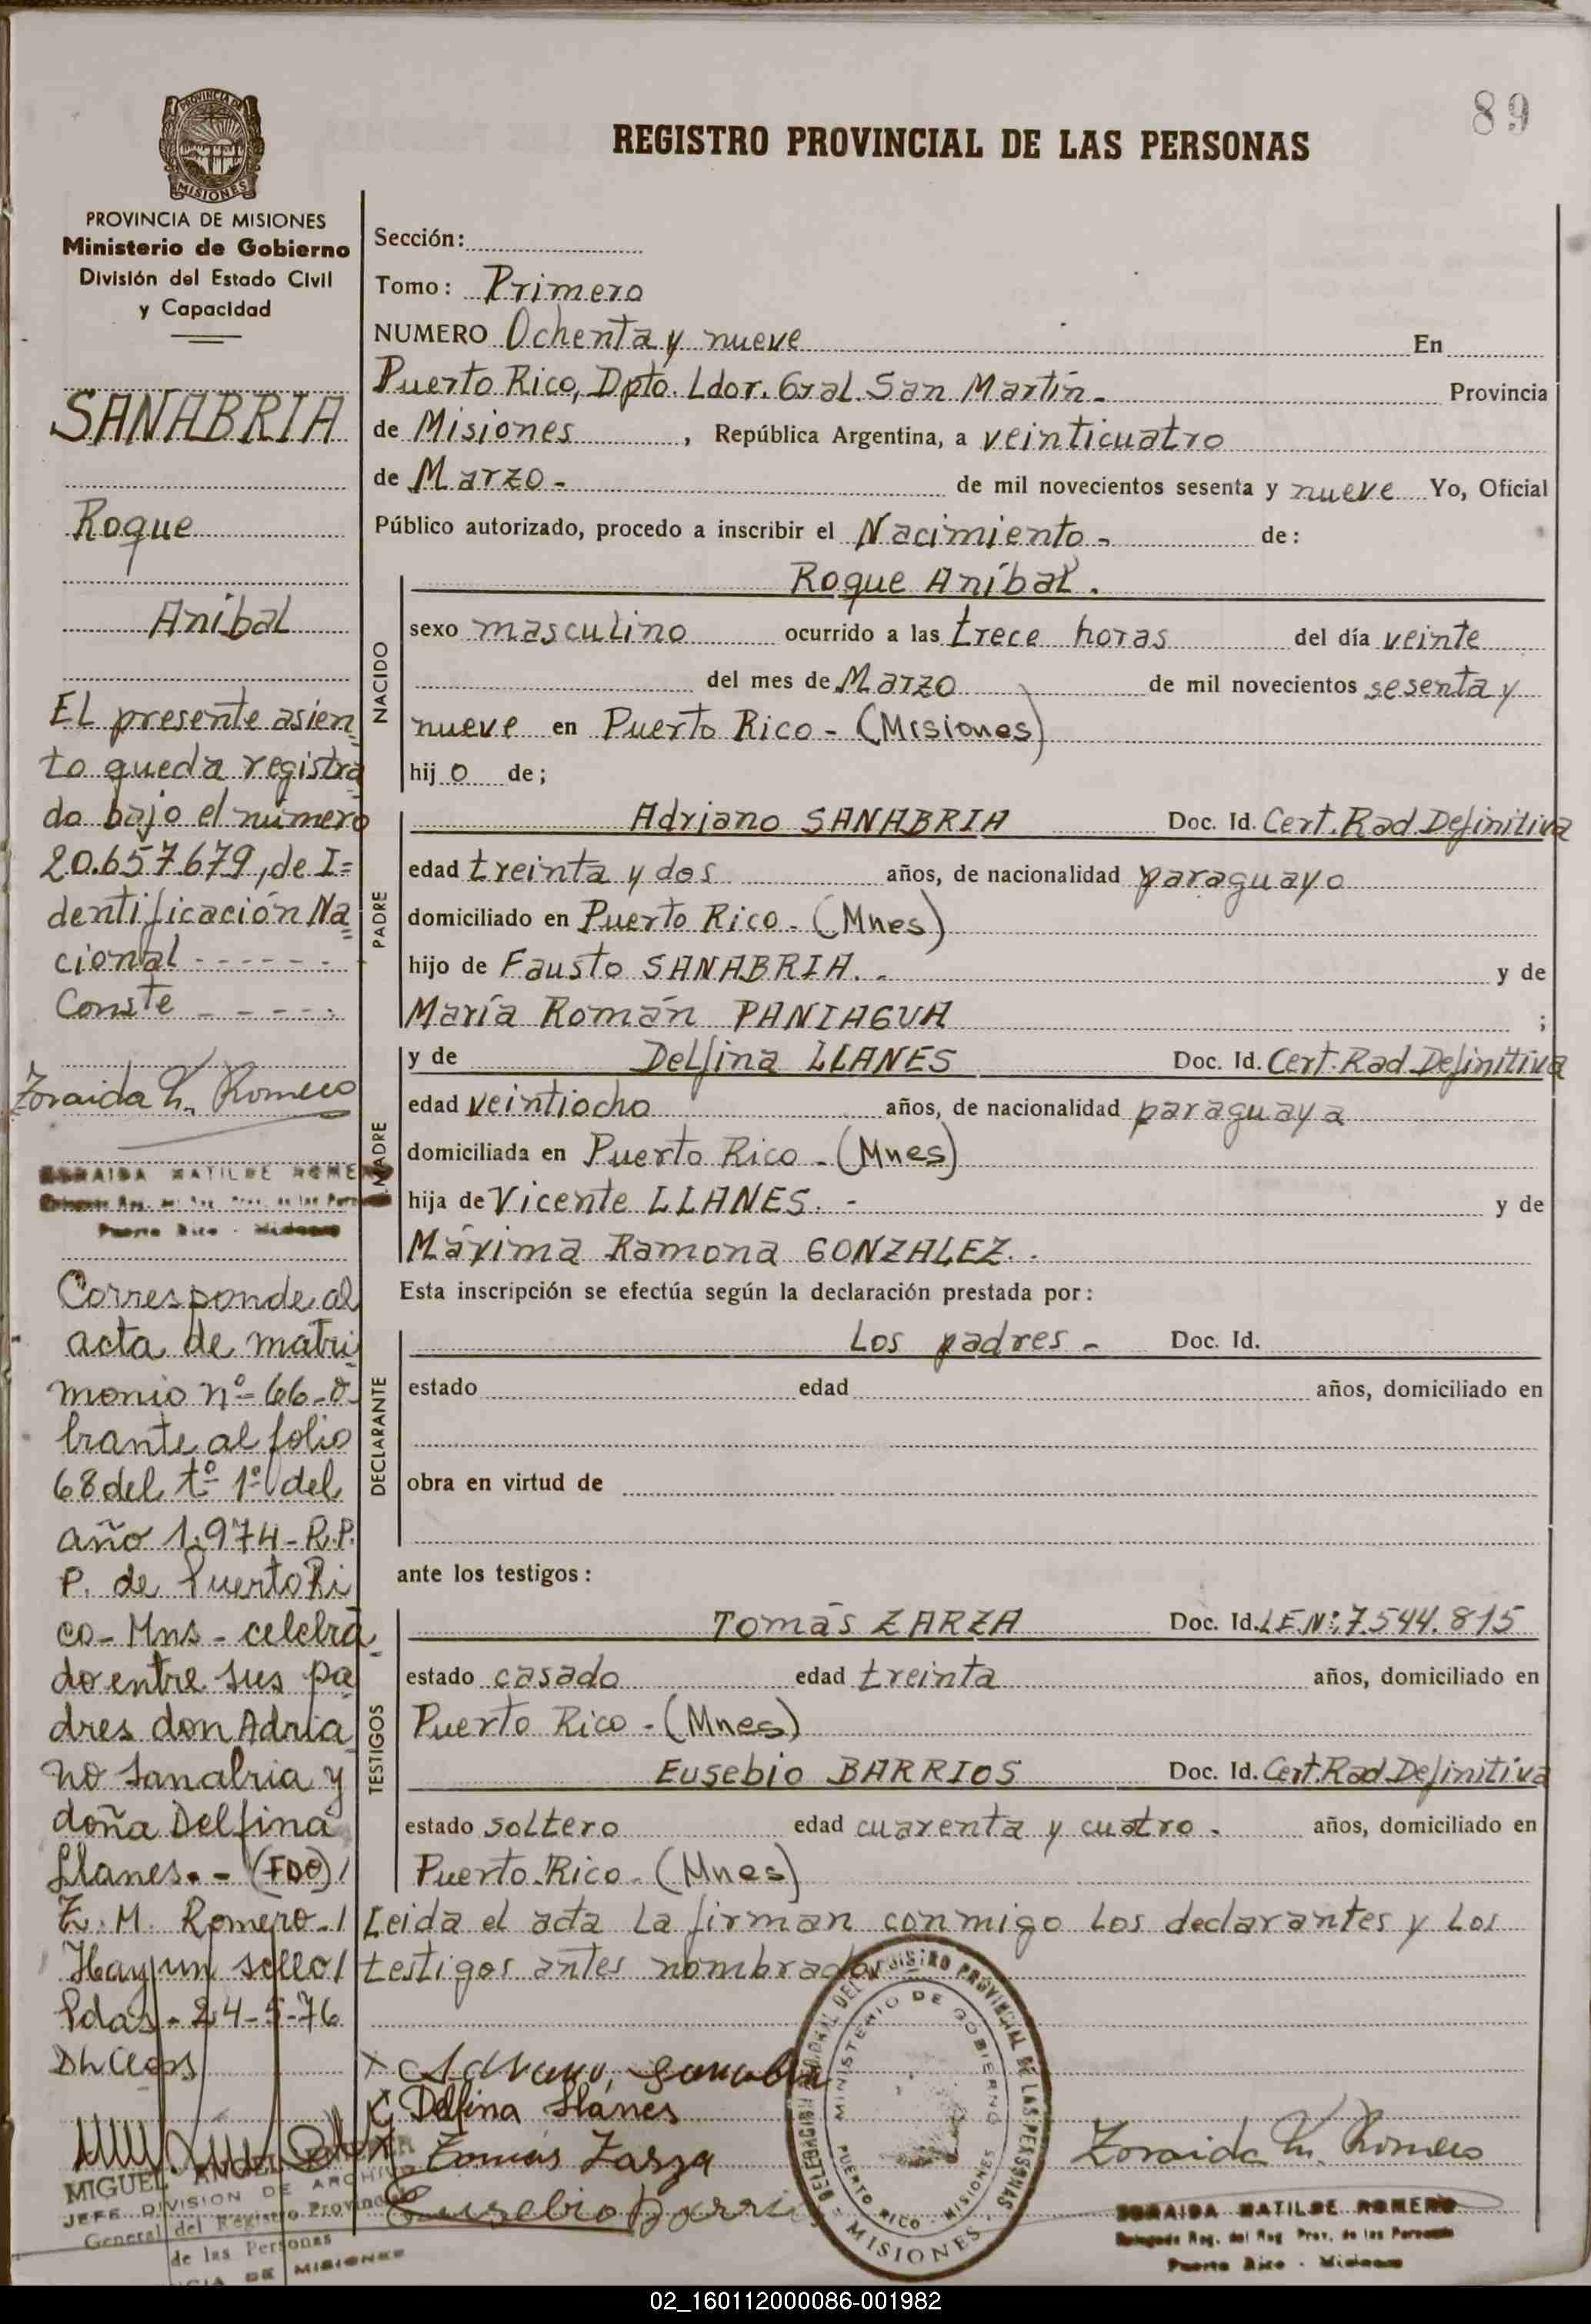 89
REGISTRO PROVINCIAL DE LAS PERSONAS
PROVINCIA DE
MISIONES
PROVINCIA DE MISIONES
Ministerio de Gobierno
División del Estado Civil
y Capacidad
SANABRIA
Roque
Aníbal
EL presente asien=
to queda registra
do bajo el número
20.657.679, de I=
dentificación Na=
cional - - - - - -
Conste - - - - -.
Zoraida M. Romero
ZORAIDA MATILDE ROMERO
Delegada Reg. del Reg. Prov. de las Personas
Puerto Rico - Misiones
Corresponde al
acta de matri
monio nº 66-o-
brante al folio
68 del tº 1º del
año 1.974-R.P.
P. de Puerto Ri
co-Mns-celebra
do entre sus pa
dres don Adria
no Sanabria y
doña Delfina
Llanes.- (FDO)/
Z. M. Romero-/
Hay un sello/
Pdas-24-5-76
MIGUEL ANGEL
JEFE DIVISION DE ARCHIVO
General del Registro Provincial
de las Personas
CIA DE MISIONES
Sección:
Tomo: Primero
NUMERO Ochenta y nueve En
Puerto Rico, Dpto. Ldor. Gral. San Martín- Provincia
de Misiones, República Argentina, a veinticuatro
de Marzo- de mil novecientos sesenta y nueve Yo, Oficial
Público autorizado, procedo a inscribir el Nacimiento- de:
NACIDO
Roque Aníbal.
sexo masculino ocurrido a las trece horas del día veinte
del mes de Marzo de mil novecientos sesenta y
nueve en Puerto Rico - (Misiones)
hijo de;
PADRE
Adriano SANABRIA Doc. Id. Cert. Rad. Definitiva
edad treinta y dos años, de nacionalidad paraguayo
domiciliado en Puerto Rico - (Mnes)
hijo de Fausto SANABRIA.- y de
María Román PANIAGUA ;
MADRE
y de Delfina LLANES Doc. Id. Cert. Rad. Definitiva
edad veintiocho años, de nacionalidad paraguaya
domiciliada en Puerto Rico - (Mnes)
hija de Vicente LLANES.- y de
Máxima Ramona GONZALEZ.-
Esta inscripción se efectúa según la declaración prestada por:
DECLARANTE
Los padres - Doc. Id.
estado edad años, domiciliado en
obra en virtud de
ante los testigos:
TESTIGOS
Tomás ZARZA Doc. Id. L.E.Nº: 7.544.815
estado casado edad treinta años, domiciliado en
Puerto Rico - (Mnes)
Eusebio BARRIOS Doc. Id. Cert. Rad. Definitiva
estado soltero edad cuarenta y cuatro - años, domiciliado en
Puerto Rico - (Mnes)
Leida el acta la firman conmigo los declarantes y los
testigos antes nombrados
Adriano Sanabria
Delfina Llanes
Tomás Zarza
Eusebio Barrios
DELEGACION REGIONAL DEL REGISTRO PROVINCIAL DE LAS PERSONAS
MINISTERIO DE GOBIERNO
PUERTO RICO - MISIONES
- MISIONES -
Zoraida M. Romero
ZORAIDA MATILDE ROMERO
Delegada Reg. del Reg. Prov. de las Personas
Puerto Rico - Misiones
02_160112000086-001982